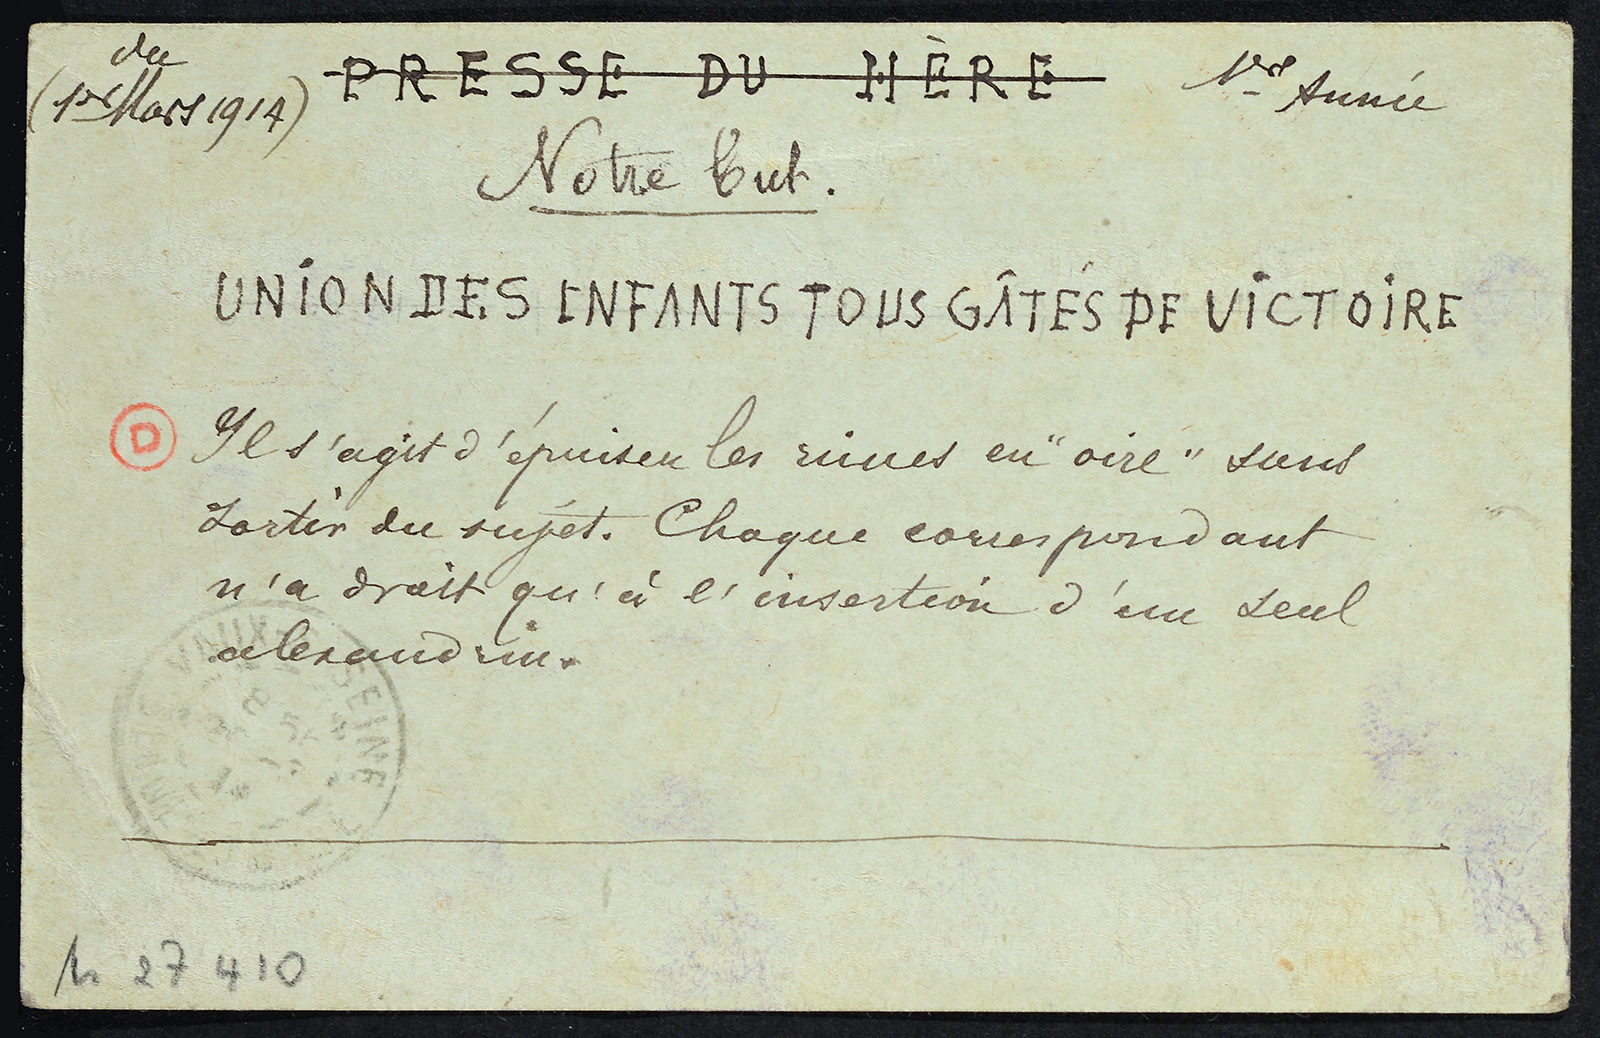 du
(1er Mars 1914)
PRESSE DU HÈRE
1ère Année
Notre But.
UNION DES ENFANTS TOUS GÂTÉS DE VICTOIRE
D
Il s'agit d'épuiser les rimes en "oire" sans
sortir du sujet. Chaque correspondant
n'a droit qu'à l'insertion d'un seul
alexandrin.
SEINE
27 410